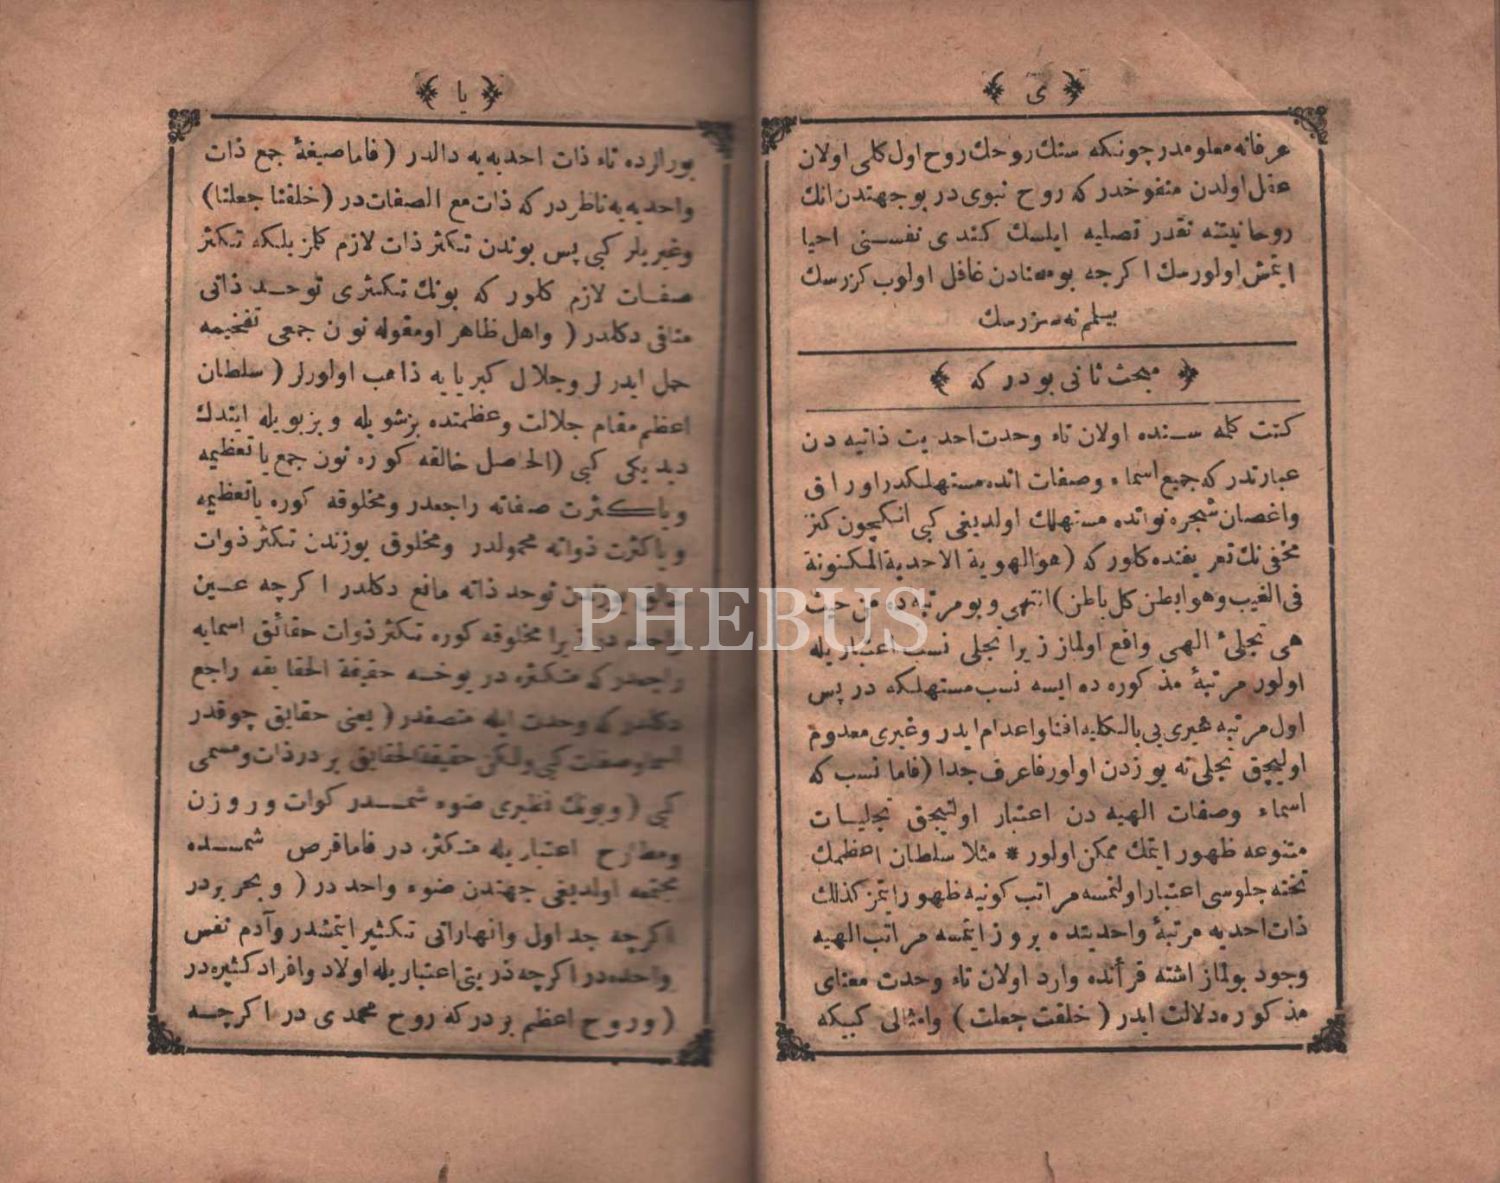 ى
عرفانه معلومدر چونكه سنك روحك روح اول كلى اولان
عقل اولدن منفوخدر كه روح نبوى در بو جهتدن انك
روحانيتنه نقدر تصليه ايلسك كندى نفسنى احيا
ايتمش اولورسك اكرچه بو معنادن غافل اولوب كزرسك
بيلم نه سزرسك
مبحث ثانى بودر كه
كنت كلمه سنده اولان تاء وحدت احديت ذاتيه دن
عبارتدر كه جميع اسماء وصفات انده مستهلكدر اوراق
واغصان شجره نواتده مستهلك اولديغى كبى انكيچون كنز
مخفى نك تعريفنده كلور كه (هو الهوية الاحدية المكنونة
فى الغيب وهو ابطن كل باطن) انتهى وبو مرتبه ده من حيث
هى تجلئ الهى واقع اولماز زيرا تجلى نسب اعتباريله
اولور مرتبۀ مذكوره ده ايسه نسب مستهلكه در پس
اول مرتبه غيرى يى بالكليه افنا واعدام ايدر وغيرى معدوم
اوليجق تجلى نه يوزدن اولور فاعرف جدا (فاما نسب كه
اسماء وصفات الهيه دن اعتبار اولنيجق تجليات
متنوعه ظهور ايتمك ممكن اولور * مثلا سلطان اعظمك
تخته جلوسى اعتبار اولنمسه مراتب كونيه ظهور ايتمز كذلك
ذات احديه مرتبۀ واحديتده بروز ايتمسه مراتب الهيه
وجود بولماز اشته قرأنده وارد اولان تاء وحدت معناى
مذكوره دلالت ايدر (خلقت جعلت) وامثالى كبيكه
يا
بورالرده تاء ذات احديه يه دالدر (فاما صيغۀ جمع ذات
واحديه يه ناظر در كه ذات مع الصفات در (خلقنا جعلنا)
وغيريلر كبى پس بوندن تكثر ذات لازم كلمز بلكه تكثر
صفات لازم كلور كه بونك تكثرى توحد ذاتى
منافى دكلدر (واهل ظاهر اومقوله نون جمعى تفخيمه
حمل ايدرلر وجلال كبريايه ذاهب اولورلر (سلطان
اعظم مقام جلالت وعظمتده بز شويله وبز بويله ايتدك
ديديكى كبى (الحاصل خالقه كوره نون جمع يا تعظيمه
ويا كثرت صفاته راجعدر ومخلوقه كوره يا تعظيمه
ويا كثرت ذواته محمولدر ومخلوق يوزندن تكثر ذوات
توحد ذاته مانع دكلدر اكرچه عين
زيرا مخلوقه كوره تكثر ذوات حقائق اسمايه
راجعدر كه متكثره در يوخسه حقيقة الحقايقه راجع
دكلدر كه وحدت ايله متصفدر (يعنى حقايق چوقدر
اسما وصفات كبى ولكن حقيقة الحقايق بردر ذات ومسمى
كبى (وبونك نظيرى ضوء شمسدر كوات وروزن
ومطارح اعتباريله متكثر در فاما قرص شمسده
مجتمعه اولديغى جهتدن ضوء واحد در (وبحر بردر
اكرچه جداول وانهاراتى تكثير ايتمشدر وآدم نفس
واحده در اكرچه ذريتى اعتباريله اولاد وافراد كثيره در
(وروح اعظم بردر كه روح محمدى در اكرچه
PHEBUS